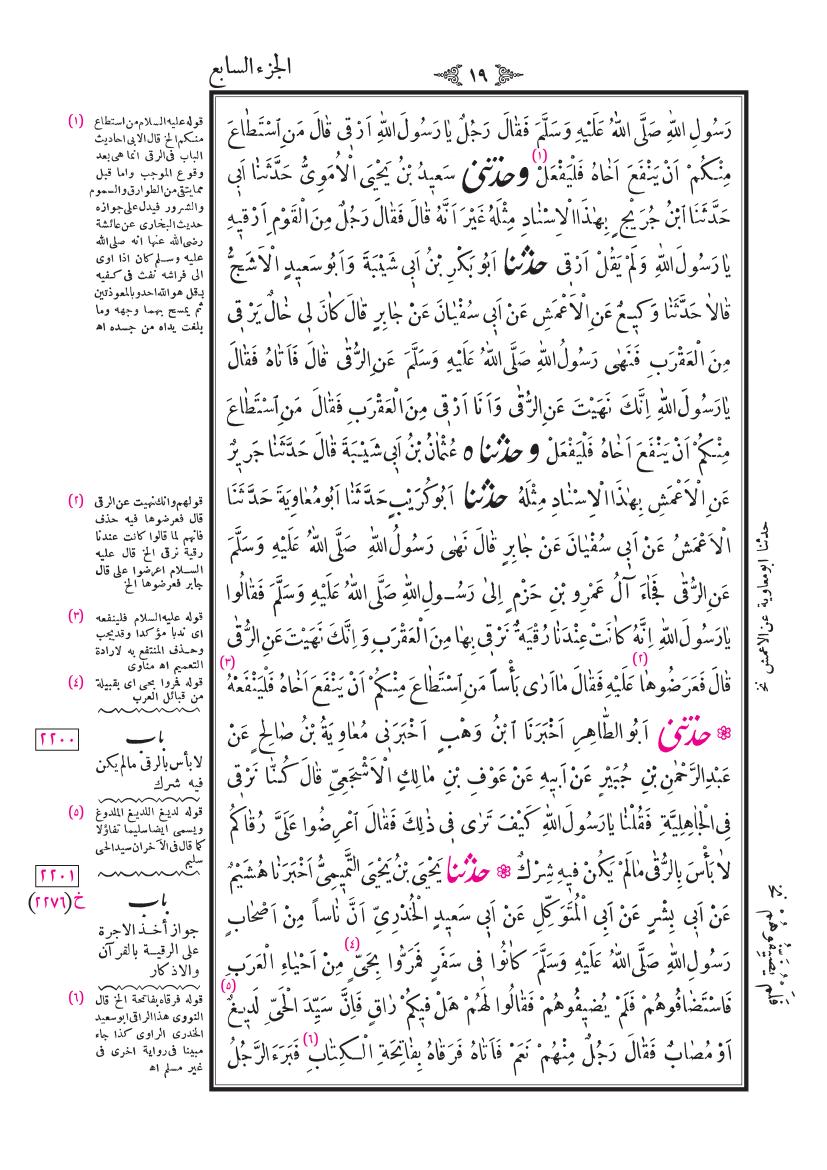 ١٩
الجزء السابع
رَسُولِ اللهِ صَلَّى اللهُ عَلَيْهِ وَسَلَّمَ فَقَالَ رَجُلٌ يَا رَسُولَ اللهِ اَرْقِى قَالَ مَنِ اسْتَطَاعَ
مِنْكُمْ اَنْ يَنْفَعَ اَخَاهُ فَلْيَفْعَلْ (١) وحدثنى سَعِيدُ بْنُ يَحْيَى الْاُمَوِىُّ حَدَّثَنَا اَبِى
حَدَّثَنَا ابْنُ جُرَيْجٍ بِهٰذَا الْاِسْنَادِ مِثْلَهُ غَيْرَ اَنَّهُ قَالَ فَقَالَ رَجُلٌ مِنَ الْقَوْمِ اَرْقِيهِ
يَا رَسُولَ اللهِ وَلَمْ يَقُلْ اَرْقِى حدثنا اَبُو بَكْرِ بْنُ اَبِى شَيْبَةَ وَاَبُو سَعِيدٍ الْاَشَجُّ
قَالَا حَدَّثَنَا وَكِيعٌ عَنِ الْاَعْمَشِ عَنْ اَبِى سُفْيَانَ عَنْ جَابِرٍ قَالَ كَانَ لِى خَالٌ يَرْقِى
مِنَ الْعَقْرَبِ فَنَهٰى رَسُولُ اللهِ صَلَّى اللهُ عَلَيْهِ وَسَلَّمَ عَنِ الرُّقٰى قَالَ فَاَتَاهُ فَقَالَ
يَا رَسُولَ اللهِ اِنَّكَ نَهَيْتَ عَنِ الرُّقٰى وَاَنَا اَرْقِى مِنَ الْعَقْرَبِ فَقَالَ مَنِ اسْتَطَاعَ
مِنْكُمْ اَنْ يَنْفَعَ اَخَاهُ فَلْيَفْعَلْ وحدثناه عُثْمَانُ بْنُ اَبِى شَيْبَةَ قَالَ حَدَّثَنَا جَرِيرٌ
عَنِ الْاَعْمَشِ بِهٰذَا الْاِسْنَادِ مِثْلَهُ حدثنا اَبُو كُرَيْبٍ حَدَّثَنَا اَبُو مُعَاوِيَةَ حَدَّثَنَا
الْاَعْمَشُ عَنْ اَبِى سُفْيَانَ عَنْ جَابِرٍ قَالَ نَهٰى رَسُولُ اللهِ صَلَّى اللهُ عَلَيْهِ وَسَلَّمَ
عَنِ الرُّقٰى فَجَاءَ آلُ عَمْرِو بْنِ حَزْمٍ اِلٰى رَسُولِ اللهِ صَلَّى اللهُ عَلَيْهِ وَسَلَّمَ فَقَالُوا
يَا رَسُولَ اللهِ اِنَّهُ كَانَتْ عِنْدَنَا رُقْيَةٌ نَرْقِى بِهَا مِنَ الْعَقْرَبِ وَاِنَّكَ نَهَيْتَ عَنِ الرُّقٰى
قَالَ فَعَرَضُوهَا (٢) عَلَيْهِ فَقَالَ مَا اَرٰى بَأْساً مَنِ اسْتَطَاعَ مِنْكُمْ اَنْ يَنْفَعَ اَخَاهُ فَلْيَنْفَعْهُ (٣)
حدثنى اَبُو الطَّاهِرِ اَخْبَرَنَا ابْنُ وَهْبٍ اَخْبَرَنِى مُعَاوِيَةُ بْنُ صَالِحٍ عَنْ
عَبْدِ الرَّحْمٰنِ بْنِ جُبَيْرٍ عَنْ اَبِيهِ عَنْ عَوْفِ بْنِ مَالِكٍ الْاَشْجَعِىِّ قَالَ كُنَّا نَرْقِى
فِى الْجَاهِلِيَّةِ فَقُلْنَا يَا رَسُولَ اللهِ كَيْفَ تَرٰى فِى ذٰلِكَ فَقَالَ اَعْرِضُوا عَلَىَّ رُقَاكُمْ
لَا بَأْسَ بِالرُّقٰى مَا لَمْ يَكُنْ فِيهِ شِرْكٌ حدثنا يَحْيَى بْنُ يَحْيَى التَّمِيمِىُّ اَخْبَرَنَا هُشَيْمٌ
عَنْ اَبِى بِشْرٍ عَنْ اَبِى الْمُتَوَكِّلِ عَنْ اَبِى سَعِيدٍ الْخُدْرِىِّ اَنَّ نَاساً مِنْ اَصْحَابِ
رَسُولِ اللهِ صَلَّى اللهُ عَلَيْهِ وَسَلَّمَ كَانُوا فِى سَفَرٍ فَمَرُّوا بِحَىٍّ (٤) مِنْ اَحْيَاءِ الْعَرَبِ
فَاسْتَضَافُوهُمْ فَلَمْ يُضِيفُوهُمْ فَقَالُوا لَهُمْ هَلْ فِيكُمْ رَاقٍ فَاِنَّ سَيِّدَ الْحَىِّ لَدِيغٌ (٥)
اَوْ مُصَابٌ فَقَالَ رَجُلٌ مِنْهُمْ نَعَمْ فَاَتَاهُ فَرَقَاهُ بِفَاتِحَةِ الْكِتَابِ (٦) فَبَرَءَ الرَّجُلُ
حدثنا ابو معاوية عن الاعمش نخ
فلم يضيفوهم نخ
(١) قوله عليه السلام من استطاع
منكم الخ قال الابى احاديث
الباب فى الرقى انما هى بعد
وقوع الموجب واما قبل
مما يتقى من الطوارق والسموم
والشرور فيدل على جوازه
حديث البخارى عن عائشة
رضى الله عنها انه صلى الله
عليه وسلم كان اذا اوى
الى فراشه نفث فى كفيه
بقل هو الله احد وبالمعوذتين
ثم يمسح بهما وجهه وما
بلغت يداه من جسده اه
(٢) قولهم وانك نهيت عن الرقى
قال فعرضوها فيه حذف
فانهم لما قالوا كانت عندنا
رقية نرقى الخ قال عليه
السلام اعرضوا على قال
جابر فعرضوها الخ
(٣) قوله عليه السلام فلينفعه
اى ندبا مؤكدا وقد يجب
وحذف المنتفع به لارادة
التعميم اه مناوى
(٤) قوله فمروا بحى اى بقبيلة
من قبائل العرب
٢٢٠٠
باب
لا بأس بالرقى مالم يكن
فيه شرك
(٥) قوله لديغ اللديغ الملدوغ
ويسمى ايضا سليما تفاؤلا
كما قال فى الآخر ان سيد الحى
سليم
٢٢٠١
خ (٢٢٧٦)
باب
جواز أخذ الاجرة
على الرقية بالقرآن
والاذكار
(٦) قوله فرقاه بفاتحة الخ قال
النووى هذا الراقى ابو سعيد
الخدرى الراوى كذا جاء
مبينا فى رواية اخرى فى
غير مسلم اه